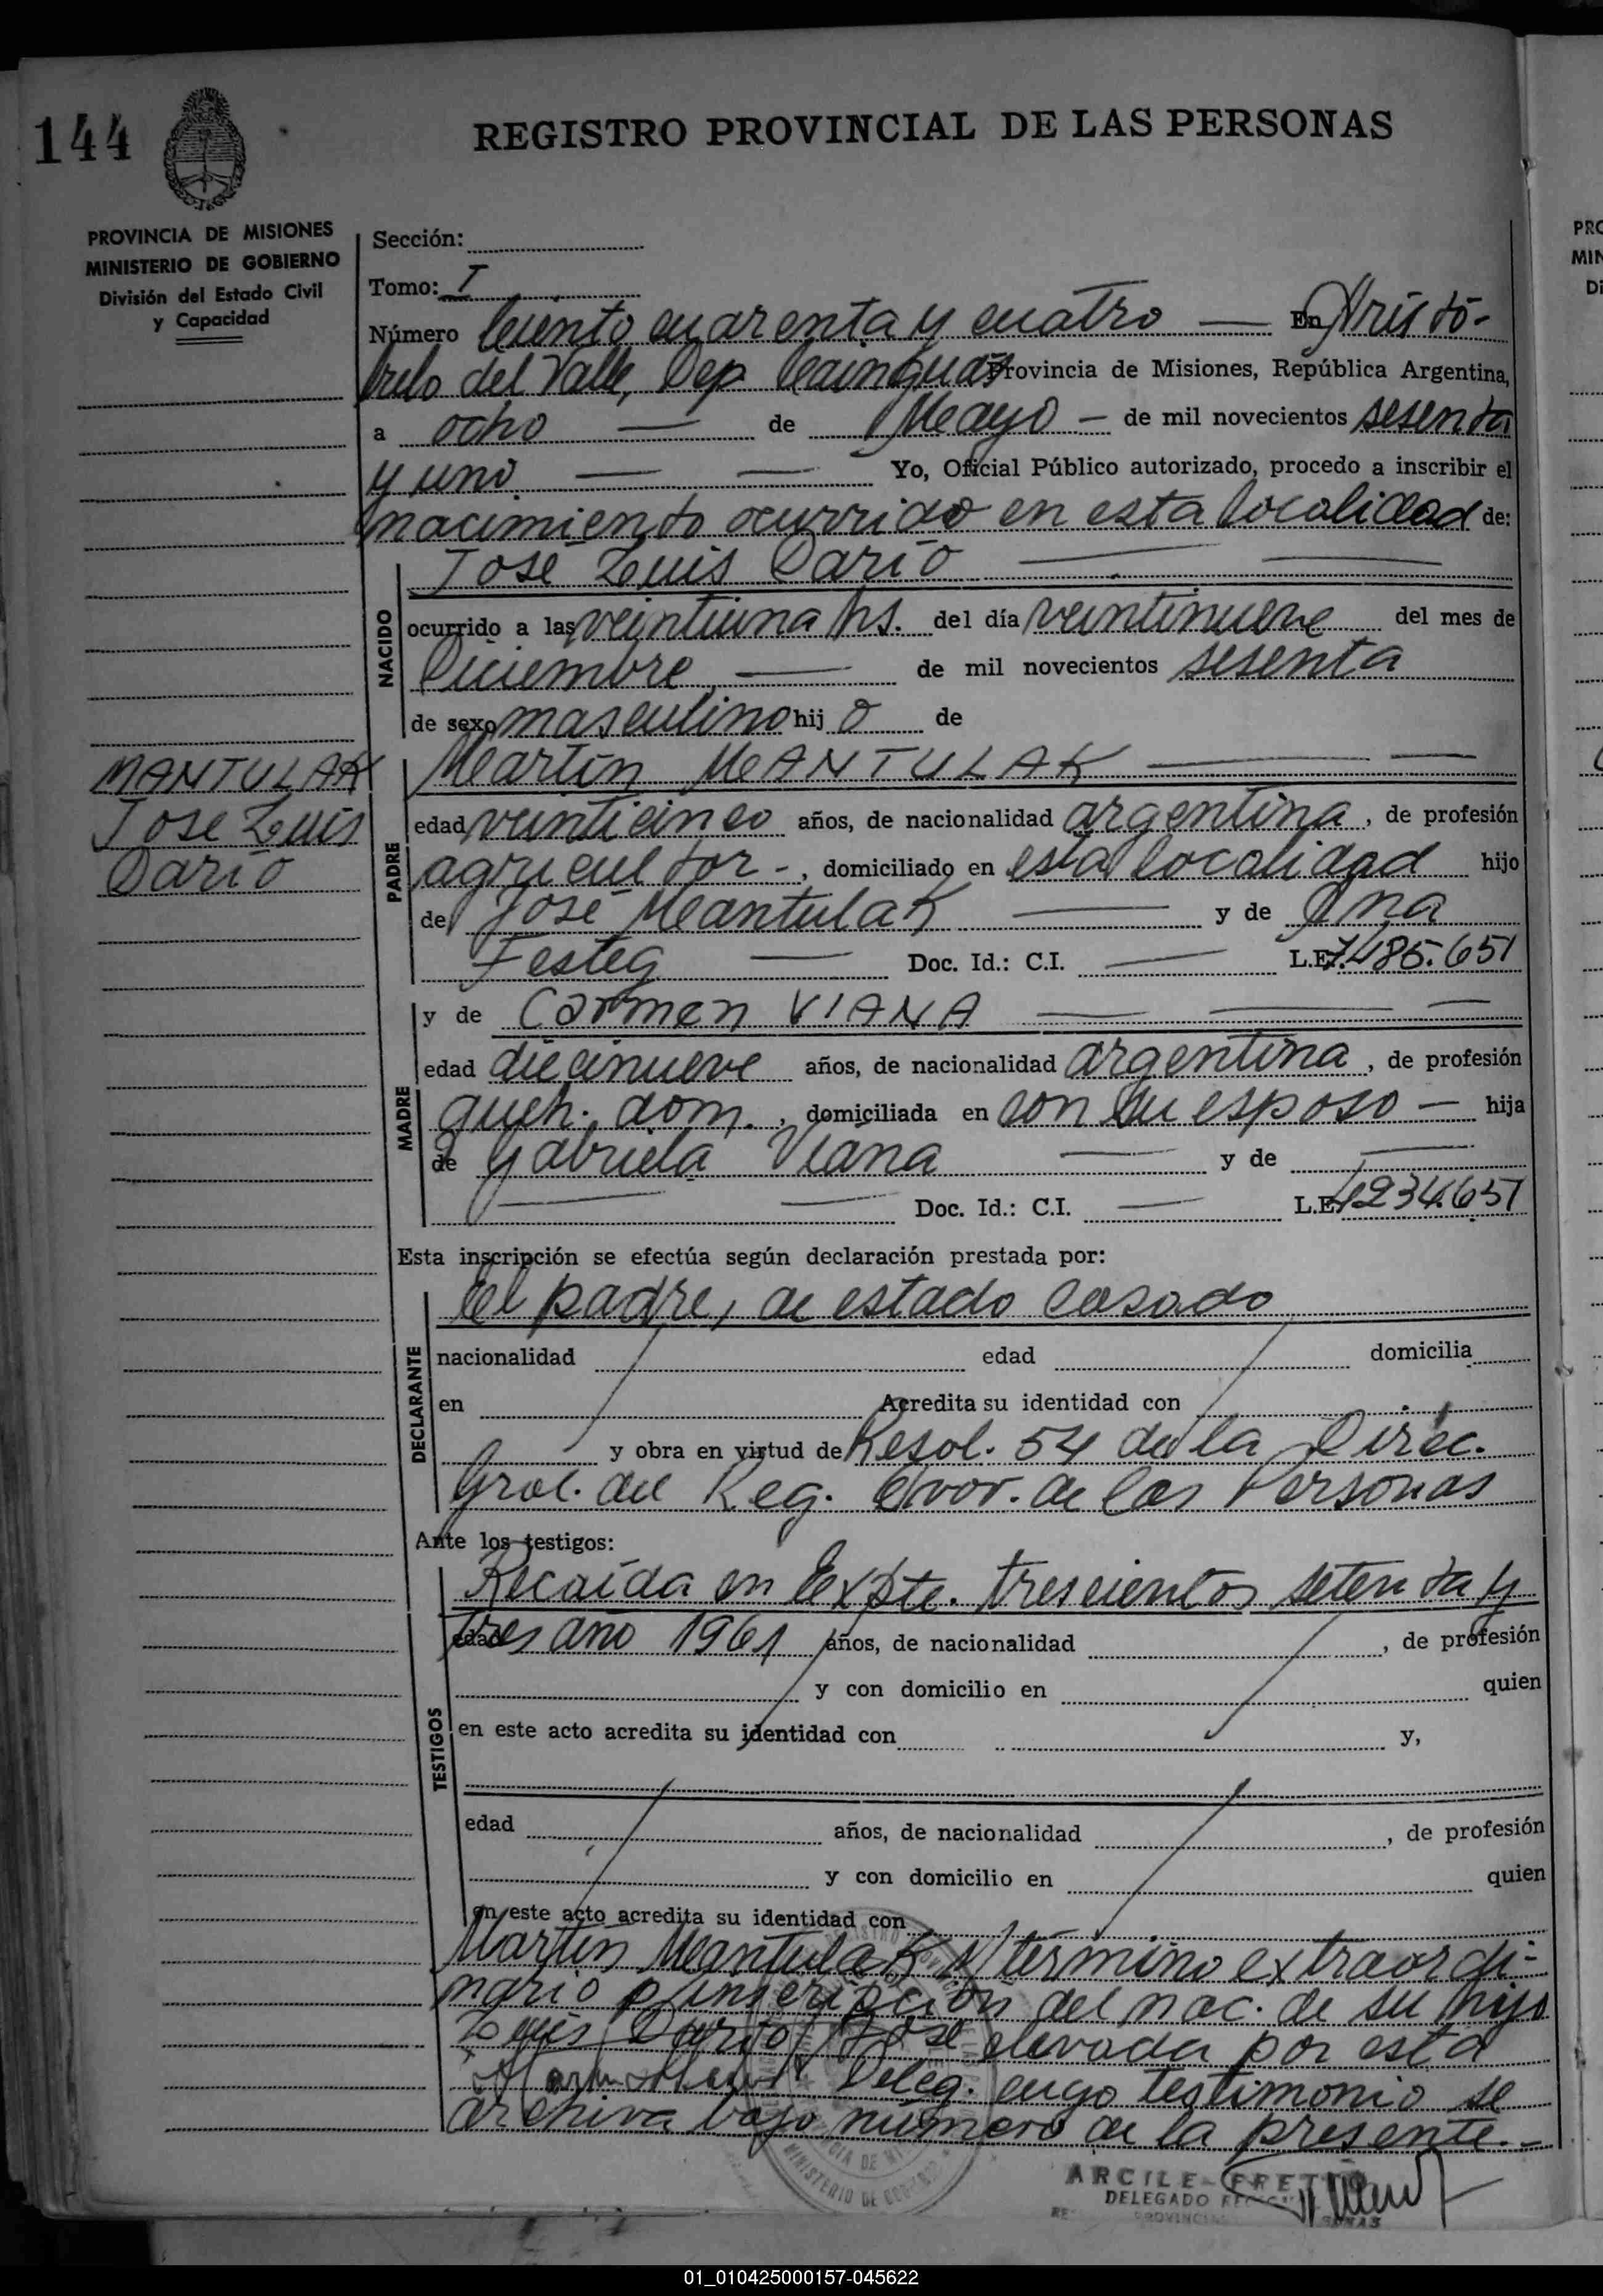 144
REGISTRO PROVINCIAL DE LAS PERSONAS
PROVINCIA DE MISIONES
MINISTERIO DE GOBIERNO
División del Estado Civil
y Capacidad
Sección:
Tomo: I
Número Ciento cuarenta y cuatro — En Aristó-
bulo del Valle, Dep. Cainguás Provincia de Misiones, República Argentina,
a ocho — de Mayo — de mil novecientos sesenta
y uno — — Yo, Oficial Público autorizado, procedo a inscribir el
nacimiento ocurrido en esta localidad de:
José Luis Darío — —
NACIDO
ocurrido a las veintiuna hs. del día veintinueve del mes de
Diciembre, — de mil novecientos sesenta
de sexo masculino hij o de
MANTULAK
Jose Luis
Darío
PADRE
Martín MANTULAK — —
edad veinticinco años, de nacionalidad argentina, de profesión
agricultor -, domiciliado en esta localidad hijo
de José Mantulak — y de Ana
Festeg — Doc. Id.: C.I. — L.E. 7.485.651
MADRE
y de Carmen VIANA — — —
edad diecinueve años, de nacionalidad argentina, de profesión
queh. dom., domiciliada en con su esposo — hija
de Gabriela Viana — y de —
— — Doc. Id.: C.I. — L.E. 1234651
Esta inscripción se efectúa según declaración prestada por:
DECLARANTE
El padre, de estado casado
nacionalidad edad domicilia
en Acredita su identidad con
y obra en virtud de Resol. 54 de la Direc.
Gral. del Reg. Prov. de las Personas
Ante los testigos:
TESTIGOS
Recaída en Expte. trescientos setenta y
tres año 1961
edad años, de nacionalidad , de profesión
y con domicilio en quien
en este acto acredita su identidad con y,
edad años, de nacionalidad , de profesión
y con domicilio en quien
en este acto acredita su identidad con
Martín Mantulak s/término extraordi-
nario p/inscripción del nac. de su hijo
Luis Darío José elevada por esta
Deleg. cuyo testimonio se
archiva bajo número de la presente.-
ARCILE
DELEGADO
PROVINCIA
MINISTERIO DE
PRO
MIN
Di
01_010425000157-045622